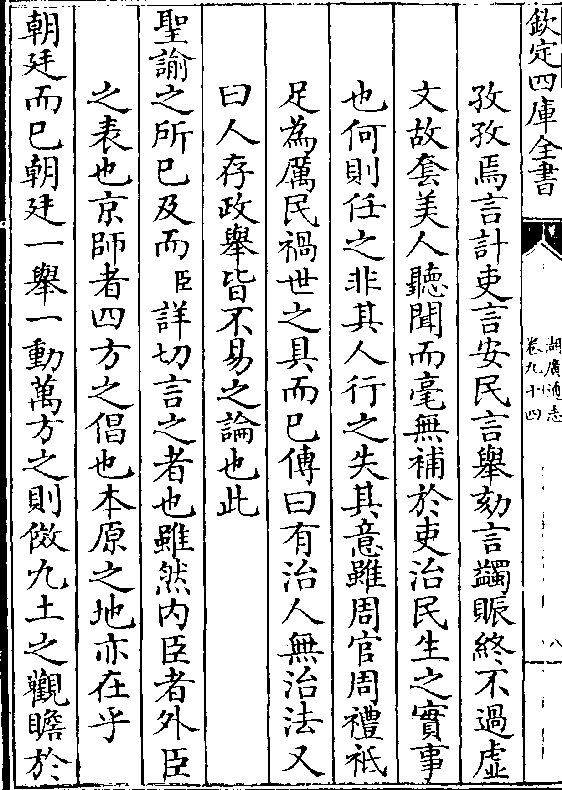 欽定四庫全書
湖廣通志
卷九十四
八
孜孜焉言計吏言安民言舉劾言蠲賑終不過虛
文故套美人聽聞而毫無補於吏治民生之實事
也何則任之非其人行之失其意雖周官周禮祇
足為厲民禍世之具而已傳曰有治人無治法又
曰人存政舉皆不易之論也此
聖諭之所已及而臣詳切言之者也雖然内臣者外臣
之表也京師者四方之倡也本原之地亦在乎
朝廷而已朝廷一舉一動萬方之則倣九土之觀瞻於